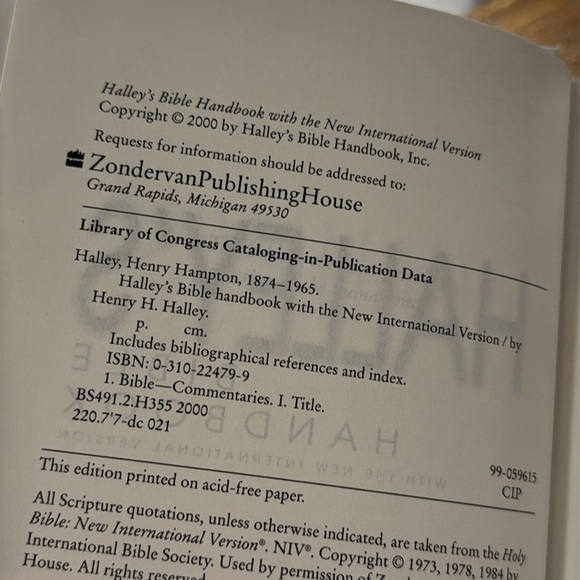 Halley's Bible Handbook with the New International Version
Copyright © 2000 by Halley's Bible Handbook, Inc.
Requests for information should be addressed to:
ZondervanPublishingHouse
Grand Rapids, Michigan 49530
Library of Congress Cataloging-in-Publication Data
Halley, Henry Hampton, 1874–1965.
Halley's Bible handbook with the New International Version / by
Henry H. Halley.
p. cm.
Includes bibliographical references and index.
ISBN: 0-310-22479-9
1. Bible—Commentaries. I. Title.
BS491.2.H355 2000
220.7'7-dc 021
99-059615
CIP
This edition printed on acid-free paper.
All Scripture quotations, unless otherwise indicated, are taken from the Holy
Bible: New International Version®. NIV®. Copyright © 1973, 1978, 1984 by
International Bible Society. Used by permission of
House. All rights reserved